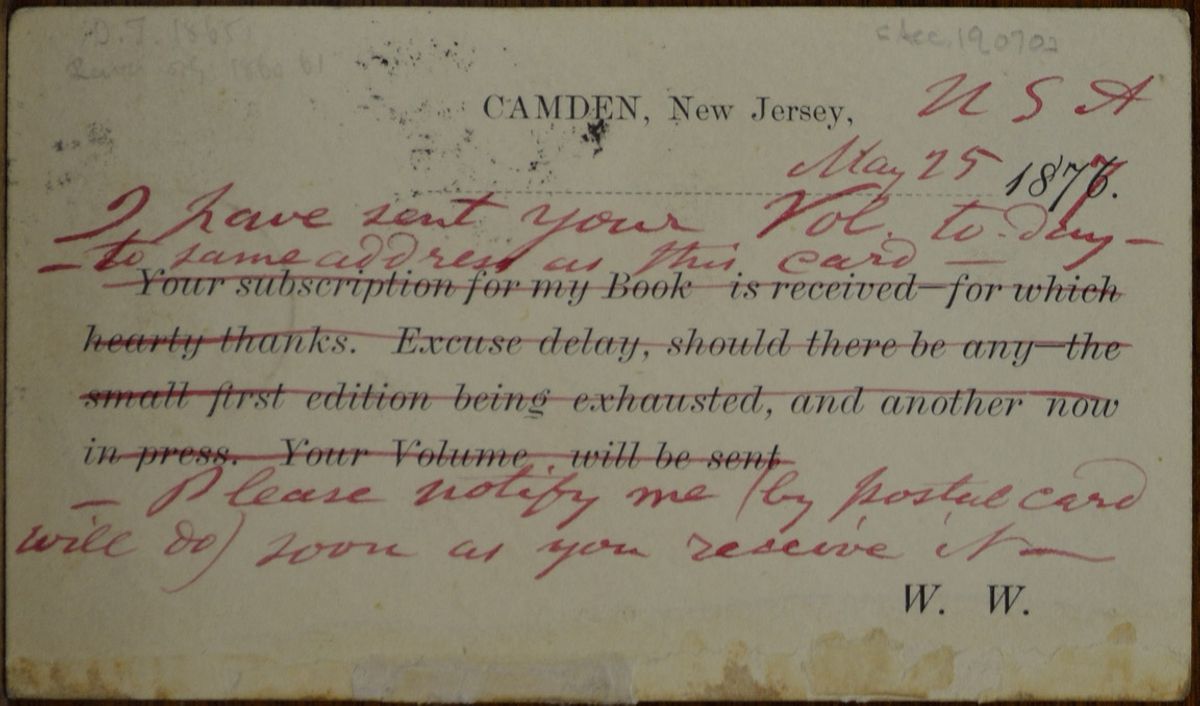 CAMDEN, New Jersey, U S A
May 25 1877.
I have sent your Vol. to-day —
— to same address as this card —
Your subscription for my Book is received—for which
hearty thanks. Excuse delay, should there be any—the
small first edition being exhausted, and another now
in press. Your Volume will be sent
— Please notify me (by postal card
will do) soon as you receive it —
W. W.